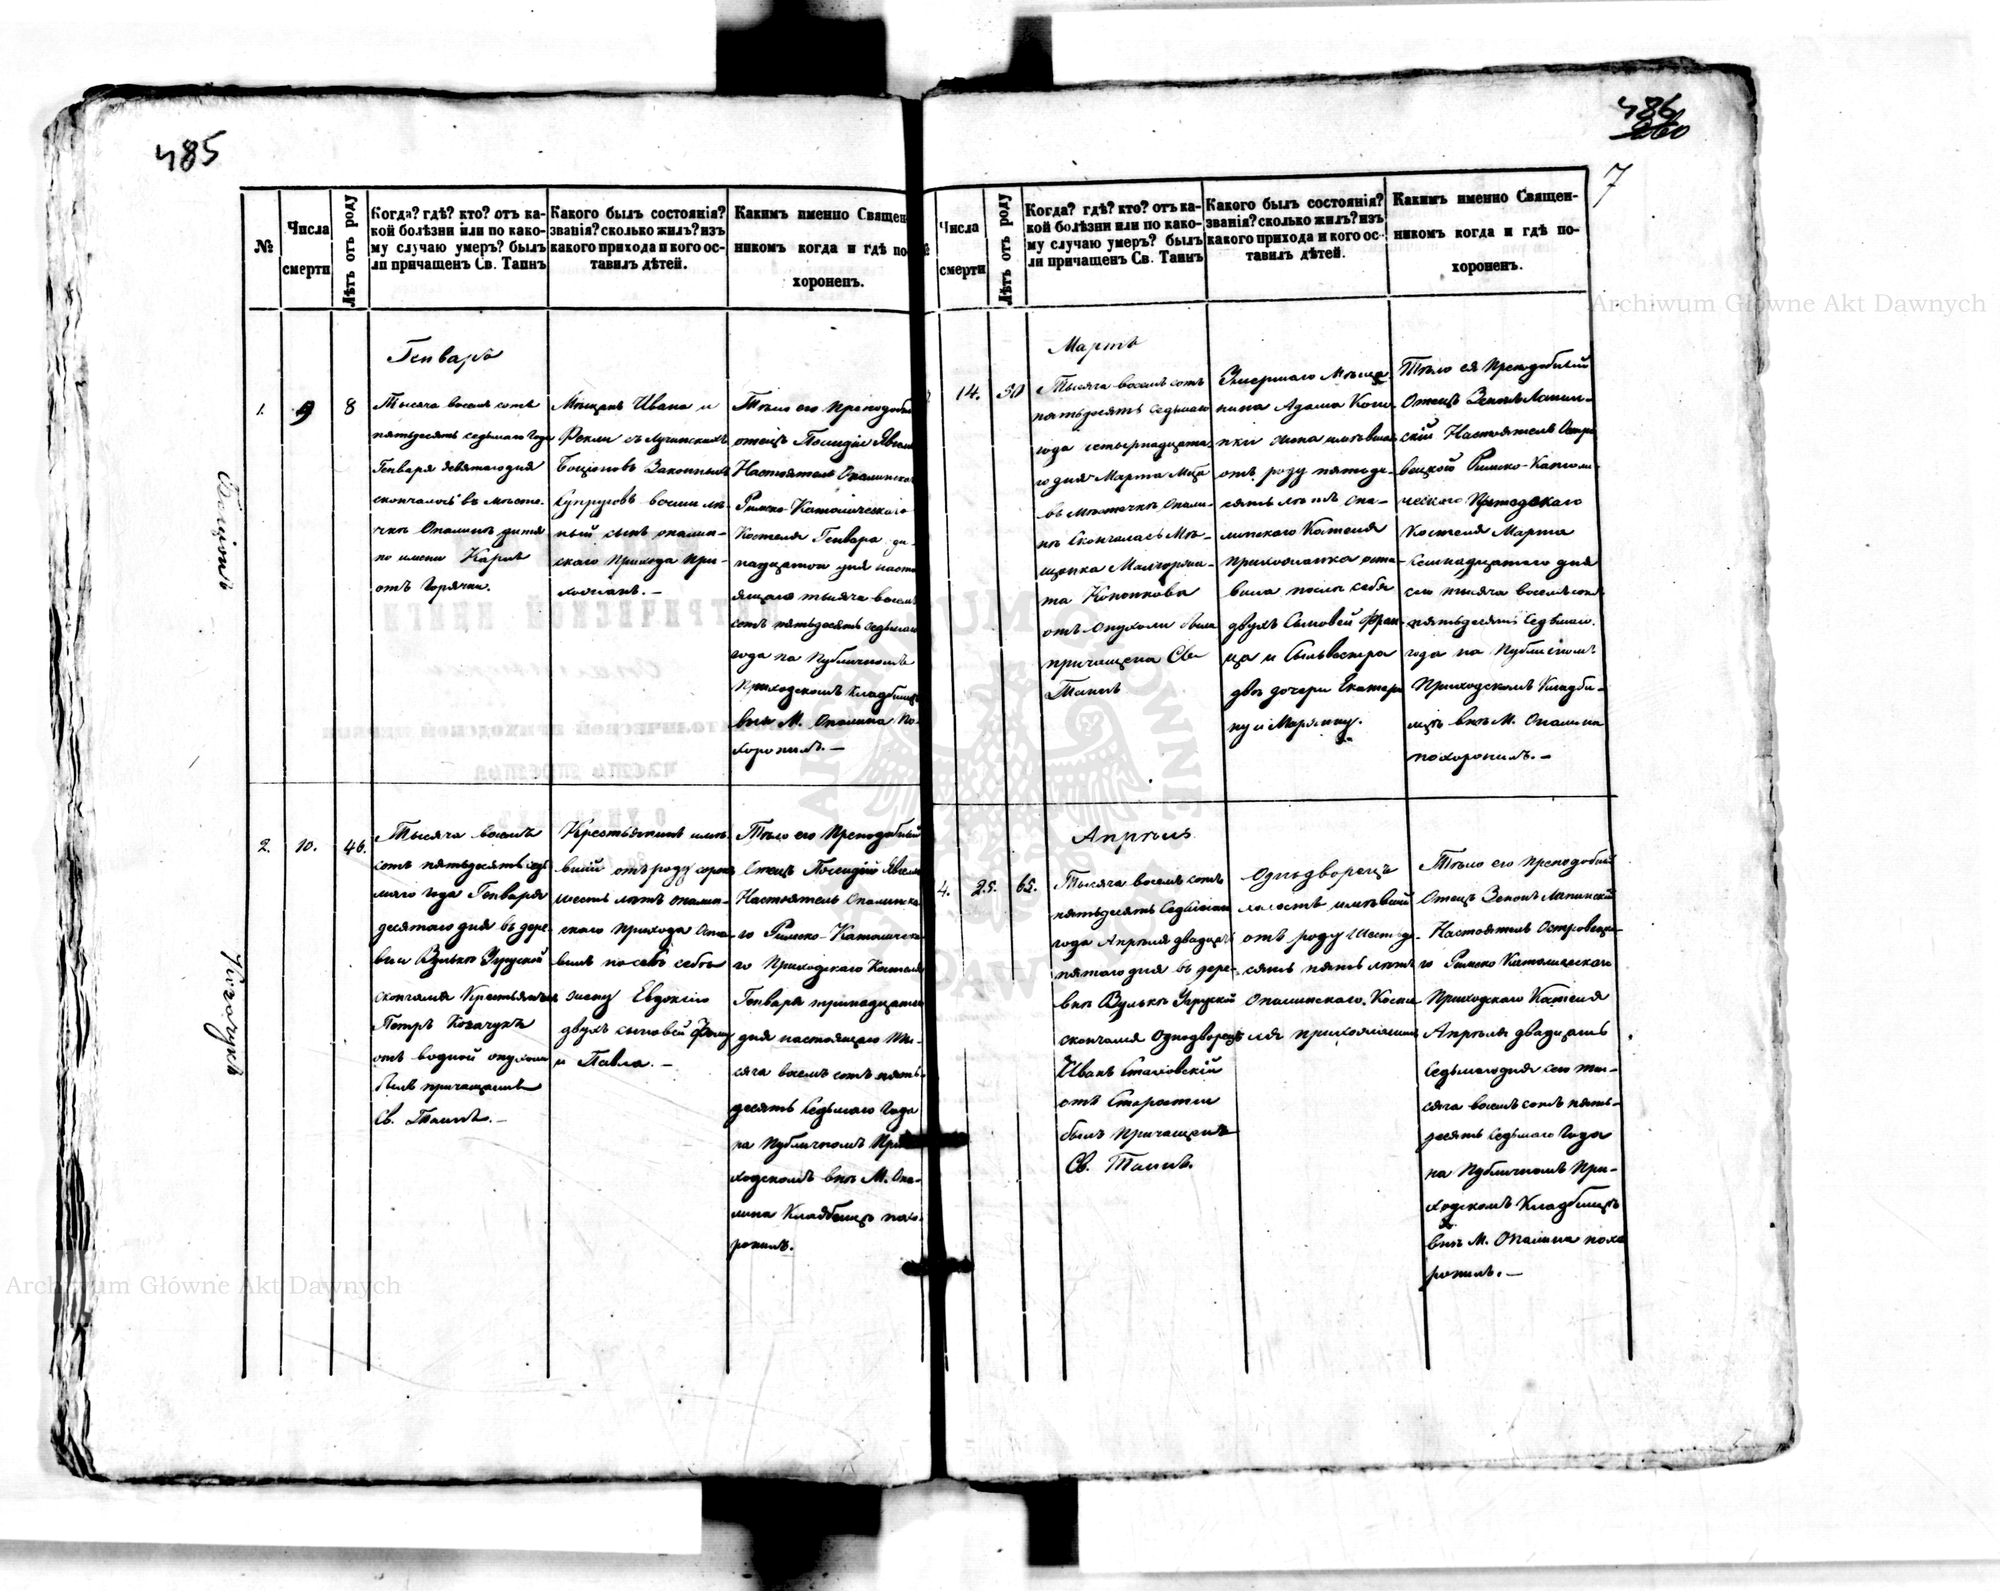 485
№
Числа
смерти
Лѣтъ отъ роду
Когда? гдѣ? кто? отъ ка-
кой болѣзни или по како-
му случаю умеръ? былъ
ли причащенъ Св. Таинъ
Какого былъ состоянія?
званія? сколько жилъ? изъ
какого прихода и кого ос-
тавилъ дѣтей.
Каким именно Священ
никомъ когда и гдѣ по
хороненъ.
1.
9
8
Генварь
Тысяча восемь сотъ
пятьдесятъ седьмаго года
Генваря девятаго дня
скончалось въ мѣсте-
чкѣ Опалинѣ дитя
по имени Карлъ
отъ горячки.
Мѣщанъ Ивана и
Феклы съ Лучинскихъ
законныхъ
Супруговъ восьми лѣ-
ний сынъ опалин-
скаго прихода при-
хожанъ. —
Тѣло его Преподоб
отецъ
Настоятель Опалинска
Римско-Католическаго
Костела Генваря
надцатаго дня насто
ящаго тысяча восемь
сотъ пятьдесятъ седьмаго
года на Публичномъ
Приходскомъ Кладбищѣ
внѣ М. Опалина По-
хоронилъ. —
2.
10.
46.
Тысяча восемь
сотъ пятьдесятъ седь
маго года Генваря
десятаго дня въ дере-
вни Вулькѣ Угруской
скончался Крестьянинъ
Петръ Козачукъ
отъ водной опухоли
былъ причащенъ
Св. Таинъ. —
Крестьянинъ имѣ
вший отъ роду сорокъ
шесть лѣтъ опалин-
скаго прихода Оста
вилъ по себѣ
жену Евдокію
двухъ сыновей Фому
и Павла. —
Тѣло его Преподобный
Отецъ
Настоятель Опалинска
го Римско-Католическа
го Приходскаго Костела
Генваря тринадцатаго
дня настоящаго Ты-
сяча восемь сотъ пять-
десятъ Седьмаго Года
на Публичномъ При
ходскомъ внѣ М. Опа-
лина Кладбищѣ похо-
ронилъ.
Козачукъ
486
260
7
Числа
смерти
Лѣтъ отъ роду
Когда? гдѣ? кто? отъ ка-
кой болѣзни или по како-
му случаю умеръ? былъ
ли причащенъ Св. Таинъ
Какого былъ состоянія?
званія? сколько жилъ? изъ
какого прихода и кого ос-
тавилъ дѣтей.
Каким именно Священ-
никомъ когда и гдѣ по-
хороненъ.
14.
50
Мартъ
Тысяча восемь сотъ
пятьдесятъ седьмаго
года четырнадцата
го дня Марта Мца
въ Мѣстечкѣ Опали-
нѣ Скончалась Мѣ-
щанка Малгоржа-
та Кононкова
отъ Опухоли была
причащена Св.
Таинъ
Умершаго Мѣща
нина Адама Коно
нки жена имѣвшая
отъ роду пятьде-
сятъ лѣтъ Опа-
линскаго Костела
прихожанка оста
вила после себя
двухъ Сыновей Фран-
ца и Сильвестра
двѣ дочери Екатери
ну и Марянну.
Тѣло ея Преподобный
Отецъ Зенонъ Лапин-
скій Настоятель Остро
вецкой Римско-Католи-
ческаго Приходскаго
Костела Марта
Семнадцатаго дня
сего тысяча восемь сотъ
пятьдесятъ Седьмаго
года на Публичномъ
Приходскомъ Кладби-
щѣ внѣ М. Опалина
похоронилъ. —
4.
25.
65.
Апрѣль
Тысяча восемь сотъ
пятьдесятъ Седьмаго
года Апрѣля двадцать
пятаго дня въ дере-
внѣ Вулькѣ Угруской
скончался Однодворецъ
Иванъ Стаховскій
отъ Старости
былъ Причащенъ
Св. Таинъ.
Однодворецъ
холостъ имѣвший
отъ роду Шестьде-
сятъ пять лѣтъ
Опалинскаго Косте
ла прихожанинъ
Тѣло его преподобный
Отецъ Зенонъ Лапинскій
Настоятель Островецка-
го Римско Католическаго
Приходскаго Костела
Апрѣля двадцать
Седьмаго дня сего ты-
сяча восемь сотъ пять-
десятъ Седьмаго Года
на Публичномъ При-
ходскомъ Кладбищѣ
внѣ М. Опалина похо
ронилъ. —
Archiwum Główne Akt Dawnych
Archiwum Główne Akt Dawnych